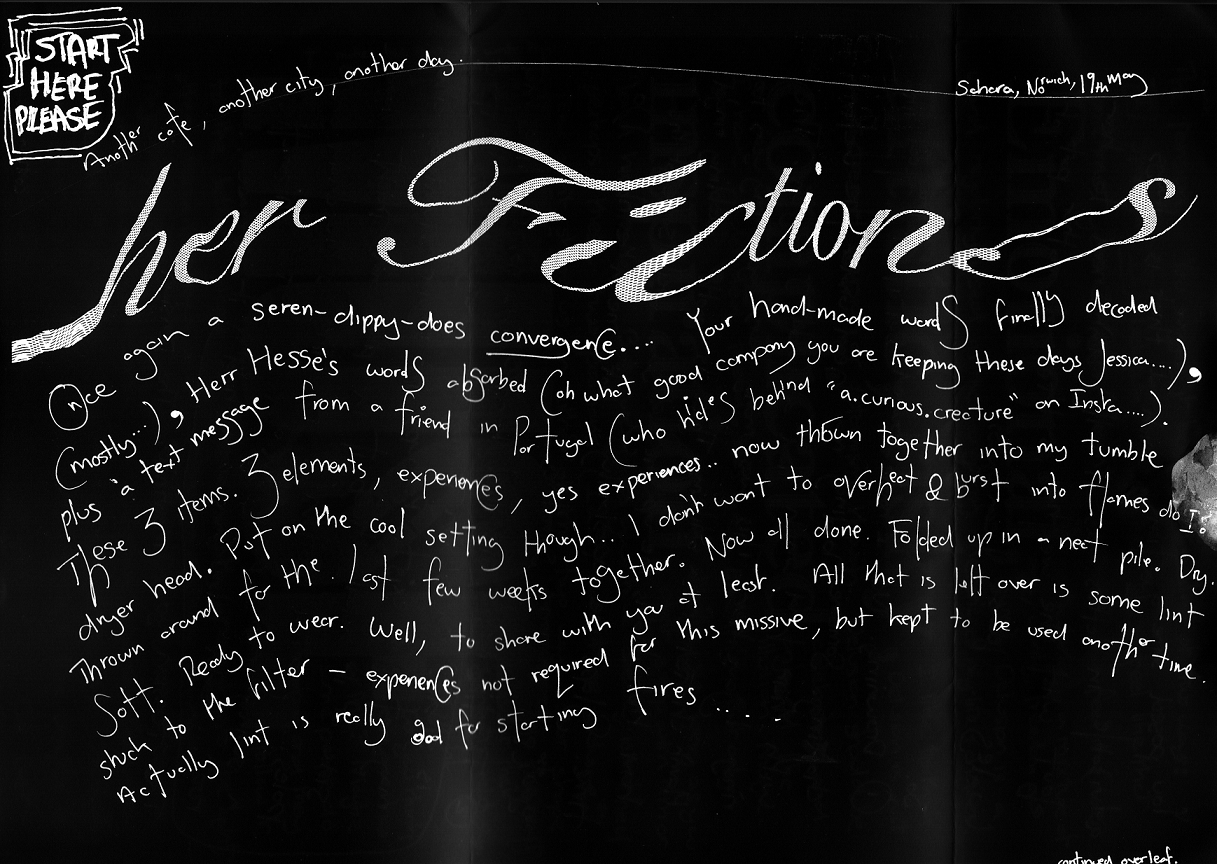 START
HERE
PLEASE
Another cafe, another city, another day.
Sahara, Norwich, 19th May
her Fictions
Once again a seren-dippy-does convergence.... Your hand-made words finally decoded
(mostly...), Herr Hesse's words absorbed (oh what good company you are keeping these days Jessica....),
plus a text message from a friend in Portugal (who hides behind "a.curious.creature" on Insta....).
These 3 items. 3 elements, experiences, yes experiences.. now thrown together into my tumble
dryer head. Put on the cool setting though... I don't want to overheat & burst into flames do I?
Thrown around for the last few weeks together. Now all done. Folded up in a neat pile. Dry.
Soft. Ready to wear. Well, to share with you at least. All that is left over is some lint
stuck to the filter – experiences not required for this missive, but kept to be used another time.
Actually lint is really good for starting fires ....
continued overleaf.